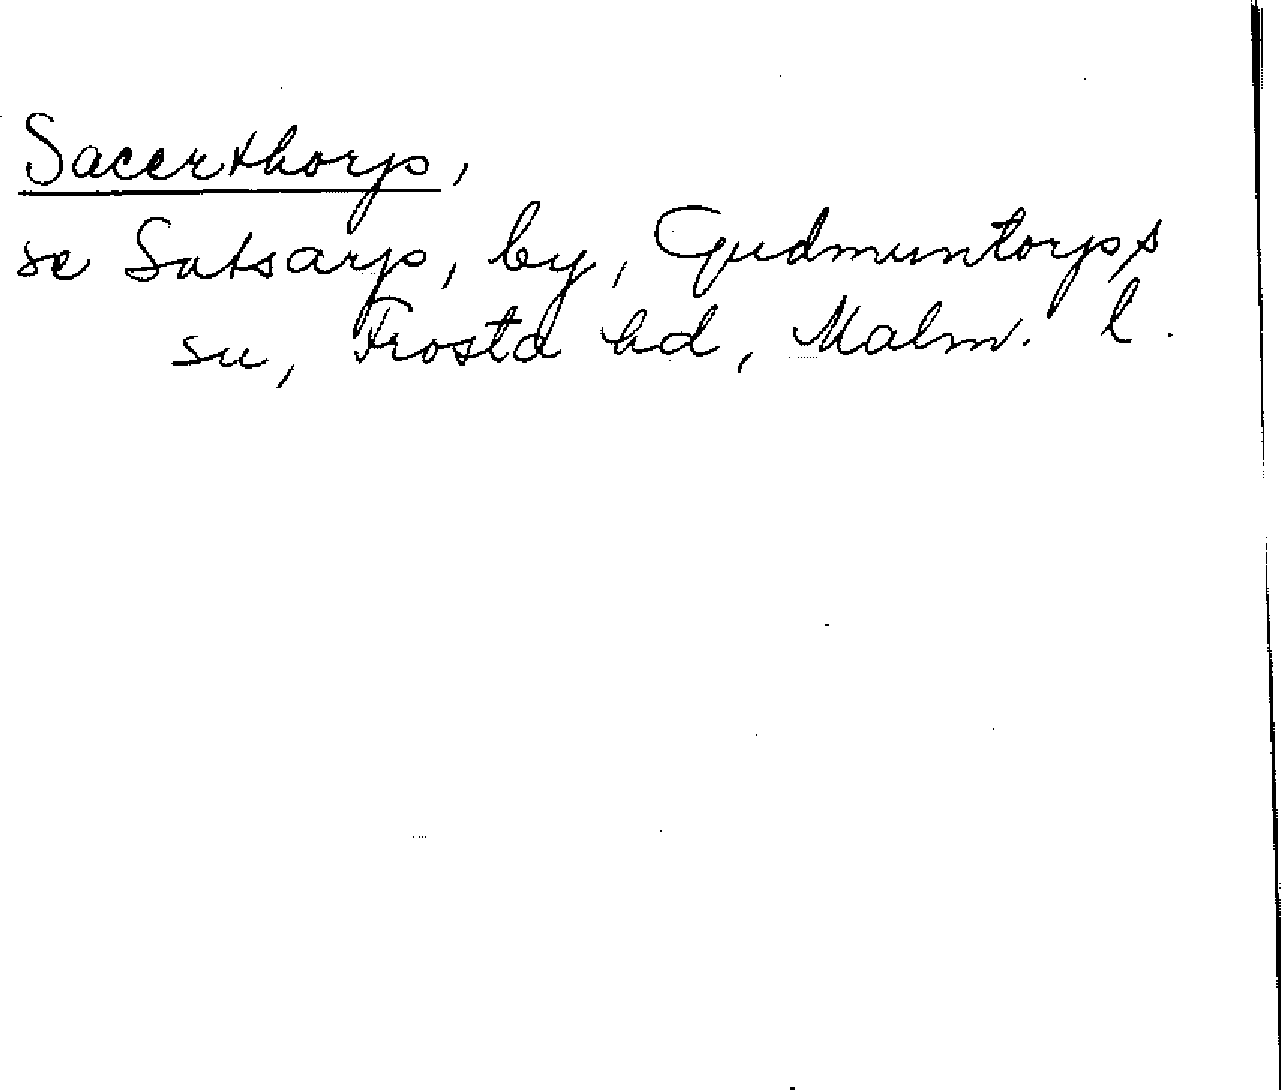 Sacerthorp,
se Satsarp, by, Gudmuntorps
su, Frosta hd, Malm. l.